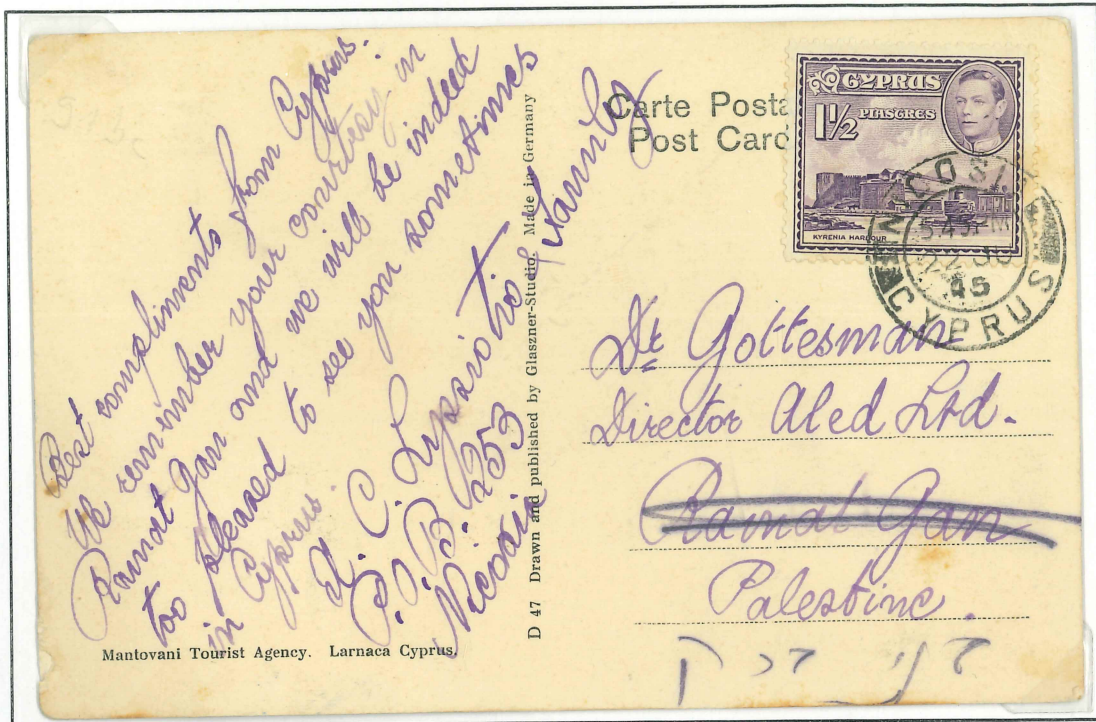 Best compliments from Cyprus.
We remember your courtesy in
Ramat Gan and we will be indeed
too pleased to see you sometimes
in Cyprus.
C.
& family
P.O.B. 253
Nicosia
Mantovani Tourist Agency. Larnaca Cyprus.
D 47 Drawn and published by Glaszner-Studio. Made in Germany
Carte Posta
Post Card
CYPRUS
1½ PIASTRES
KYRENIA HARBOUR
NICOSIA
45
CYPRUS
Dr Gottesman
Director Aled Ltd.
Ramat Gan
Palestine.
בני ברק